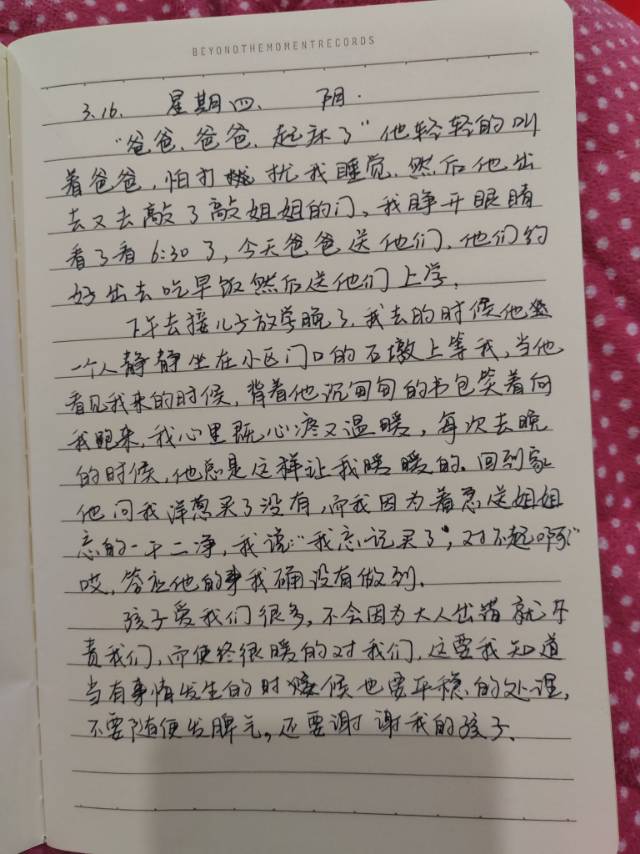 BEYONDTHEMOMENTRECORDS
3.16. 星期四、 阴.
“爸爸、爸爸、起床了”他轻轻的叫
着爸爸，怕打扰我睡觉、然后他出
去又去敲了敲姐姐的门。我睁开眼睛
看了看6:30了，今天爸爸送他们、他们约
好出去吃早饭然后送他们上学，
下午去接儿子放学晚了、我去的时候他
一个人静静坐在小区门口的石墩上等我，当他
看见我来的时候，背着他沉甸甸的书包笑着向
我跑来，我心里既心疼又温暖，每次去晚
的时候，他总是这样让我暖暖的。回到家
他问我洋葱买了没有，而我因为着急送姐姐
忘的一干二净，我说:“我忘记买了，对不起啊”
哎，答应他的事我确没有做到、
孩子爱我们很多，不会因为大人出错就斥
责我们，而使终很暖的对我们，这要我知道
当有事情发生的时候也要平稳的处理，
不要随便发脾气，还要谢谢我的孩子、